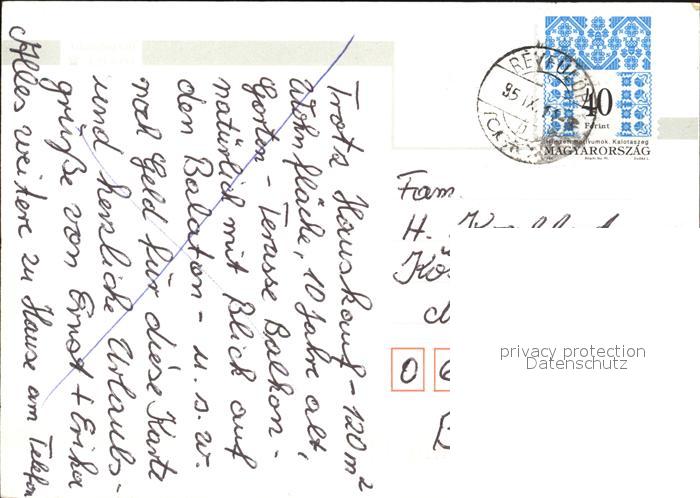 Trotz Hauskauf - 120 m²
Wohnfläche, 10 Jahre alt,
Garten - Terasse Balkon -
natürlich mit Blick auf
den Balaton - u.s.w.
noch Geld für diese Karte
und herzliche Urlaubs-
grüße von Ernst + Erika
Alles weitere zu Hause am Telefon
RÉVFÜLÖP
95 IX.
40
Forint
Kalotaszeg
MAGYARORSZÁG
Fam.
H.
0
privacy protection
Datenschutz